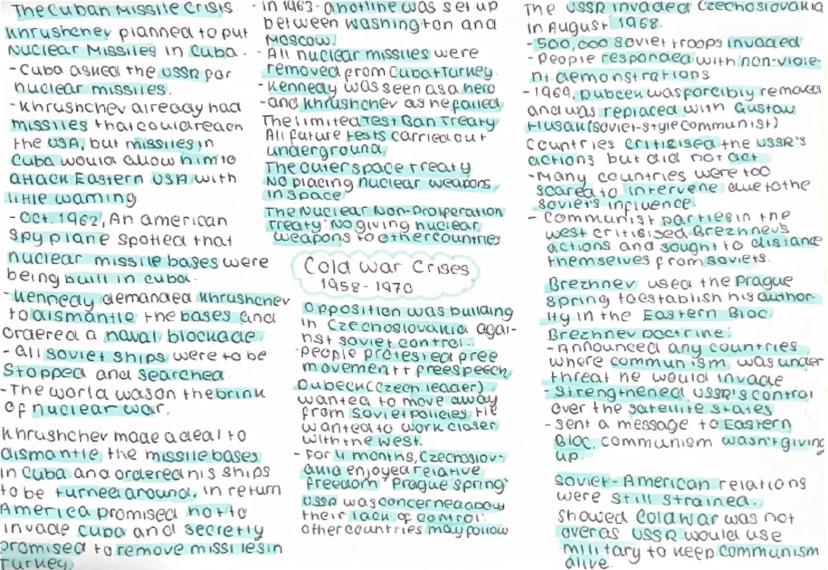 The Cuban Missile Crisis
Khrushchev planned to put
Nuclear Missiles in Cuba.
- Cuba asked the USSR for
nuclear missiles.
- Khrushchev already had
missiles that could reach
the USA, but missiles in
Cuba would allow him to
attack Eastern USA with
little warning
- Oct. 1962, An american
spy plane spotted that
nuclear missile bases were
being built in cuba.
- Kennedy demanded Khrushchev
to dismantle the bases and
ordered a naval blockade
- all soviet ships were to be
stopped and searched
- The world was on the brink
of nuclear war.
Khrushchev made a deal to
dismantle the missile bases
in Cuba and ordered his ships
to be turned around, in return
America promised not to
invade Cuba and secretly
promised to remove missiles in
Turkey.
- In 1963 a hotline was set up
between washington and
Moscow.
- All nuclear missiles were
removed from Cuba + Turkey.
- Kennedy was seen as a hero
- and Khrushchev as he failed
The limited Test Ban Treaty
All future tests carried out
underground
The outer space Treaty
No placing nuclear weapons
in space
The Nuclear Non-Proliperation
Treaty: No giving nuclear
weapons to other countries
Cold War Crises
1958-1970
Opposition was building
in Czechoslovakia agai-
nst soviet control.
- people protested free
movement + free speech
Dubeck (Czech leader)
wanted to move away
from Soviet policies. He
wanted to work closer
with the west.
- For 4 months, Czechoslov-
akia enjoyed relative
freedom 'Prague spring'
USSR was concerned about
their lack of control:
other countries may follow
The USSR invaded Czechoslovakia
in August 1968.
- 500,000 soviet troops invaded
- People responded with non-viole-
nt demonstrations
- 1969, Dubcek was forcibly removed
and was replaced with Gustav
Husak (soviet-style communist)
Countries criticised the USSR's
actions but did not act
- Many countries were too
scared to intervene due to the
soviet's influence.
- Communist parties in the
west critisised Brezhnev's
actions and sought to distance
themselves from soviets.
Brezhnev used the Prague
spring to establish his author-
ity in the Eastern Bloc
Brezhnev Doctrine:
- Announced any countries
where communism was under
threat he would invade
- Strengthened USSR's control
over the satellite states
- sent a message to Eastern
Bloc, communism wasn't giving
up
Soviet-American relations
were still strained.
showed Cold war was not
over as USSR would use
military to keep communism
alive.